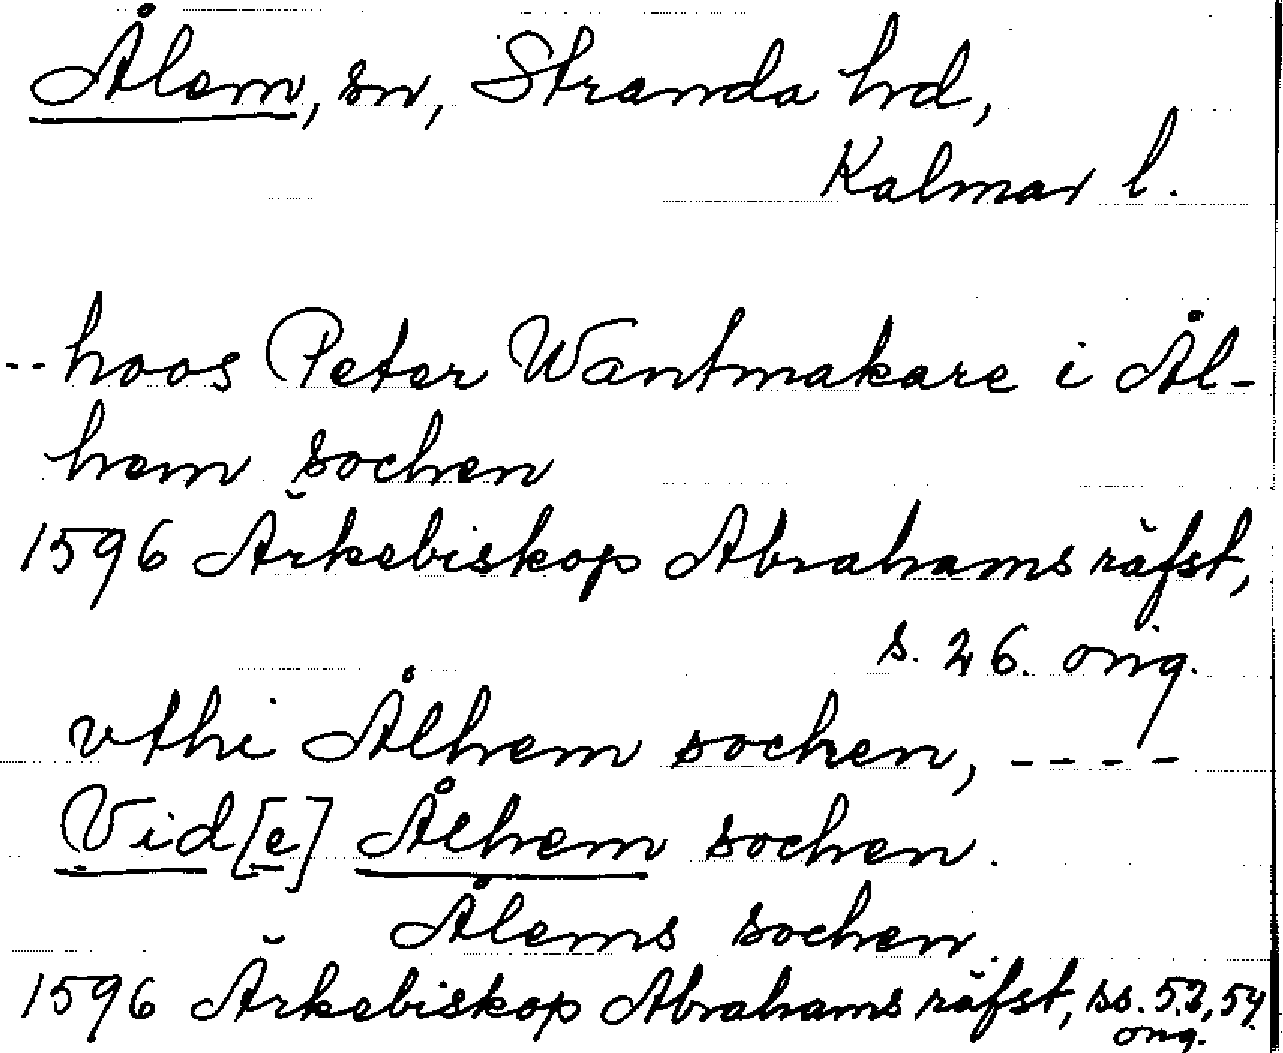 Ålem, sn, Stranda hd,
Kalmar l.
-- hoos Peter Wantmakare i Ål-
hem sochen
1596 Ärkebiskop Abrahams räfst,
s. 26. orig.
vthi Ålhem sochen, ----
Vid[e] Ålhem sochen.
Ålems sochen
1596 Ärkebiskop Abrahams räfst, ss. 53, 54.
orig.